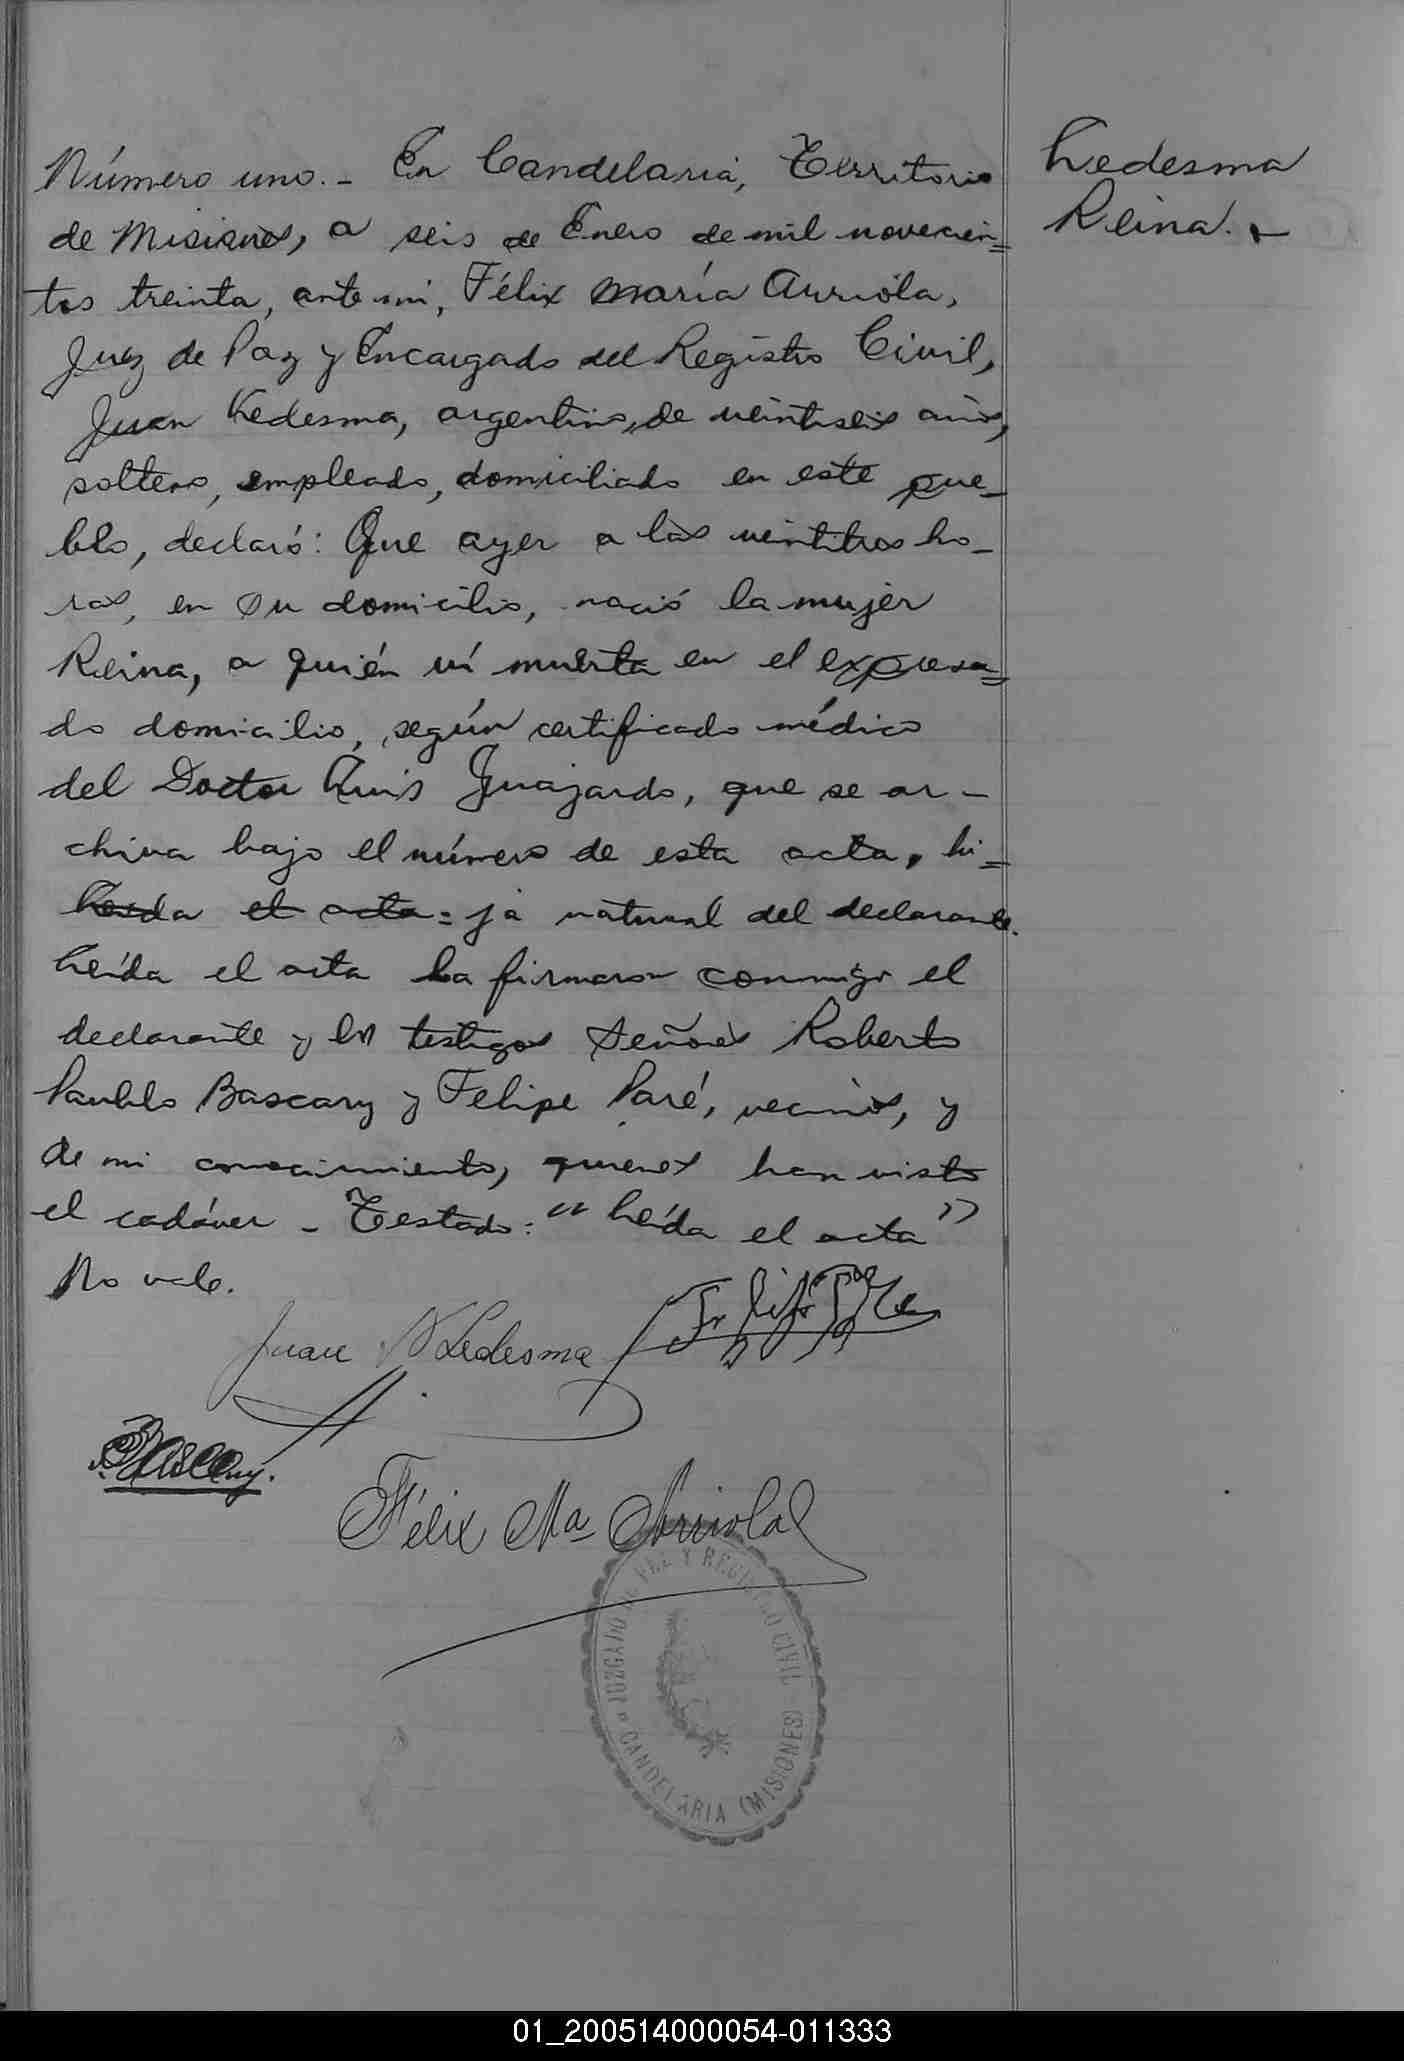 Ledesma
Reina.-
Número uno.- En Candelaria, Territorio
de Misiones, a seis de Enero de mil novecien=
tos treinta, ante mí, Félix María Arriola,
Juez de Paz y Encargado del Registro Civil,
Juan Ledesma, argentino, de veintiseis años,
soltero, empleado, domiciliado en este pue-
blo, declaró: Que ayer a las veintitres ho-
ras, en su domicilio, nació la mujer
Reina, a quién ví muerta en el expresa=
do domicilio, según certificado médico
del Doctor Luis Guajardo, que se ar-
chiva bajo el número de esta acta, hi=
Leída el acta = ja natural del declarante.
Leída el acta la firmaron conmigo el
declarante y los testigos Señores Roberto
Paublo Bascary y Felipe Paré, vecinos, y
de mi conocimiento, quienes han visto
el cadáver - Testado: "Leída el acta"
No vale.
Juan Ledesma
Bascary.
Félix Ma Arriola
JUZGADO DE PAZ Y REGISTRO CIVIL
CANDELARIA (MISIONES)
01_200514000054-011333